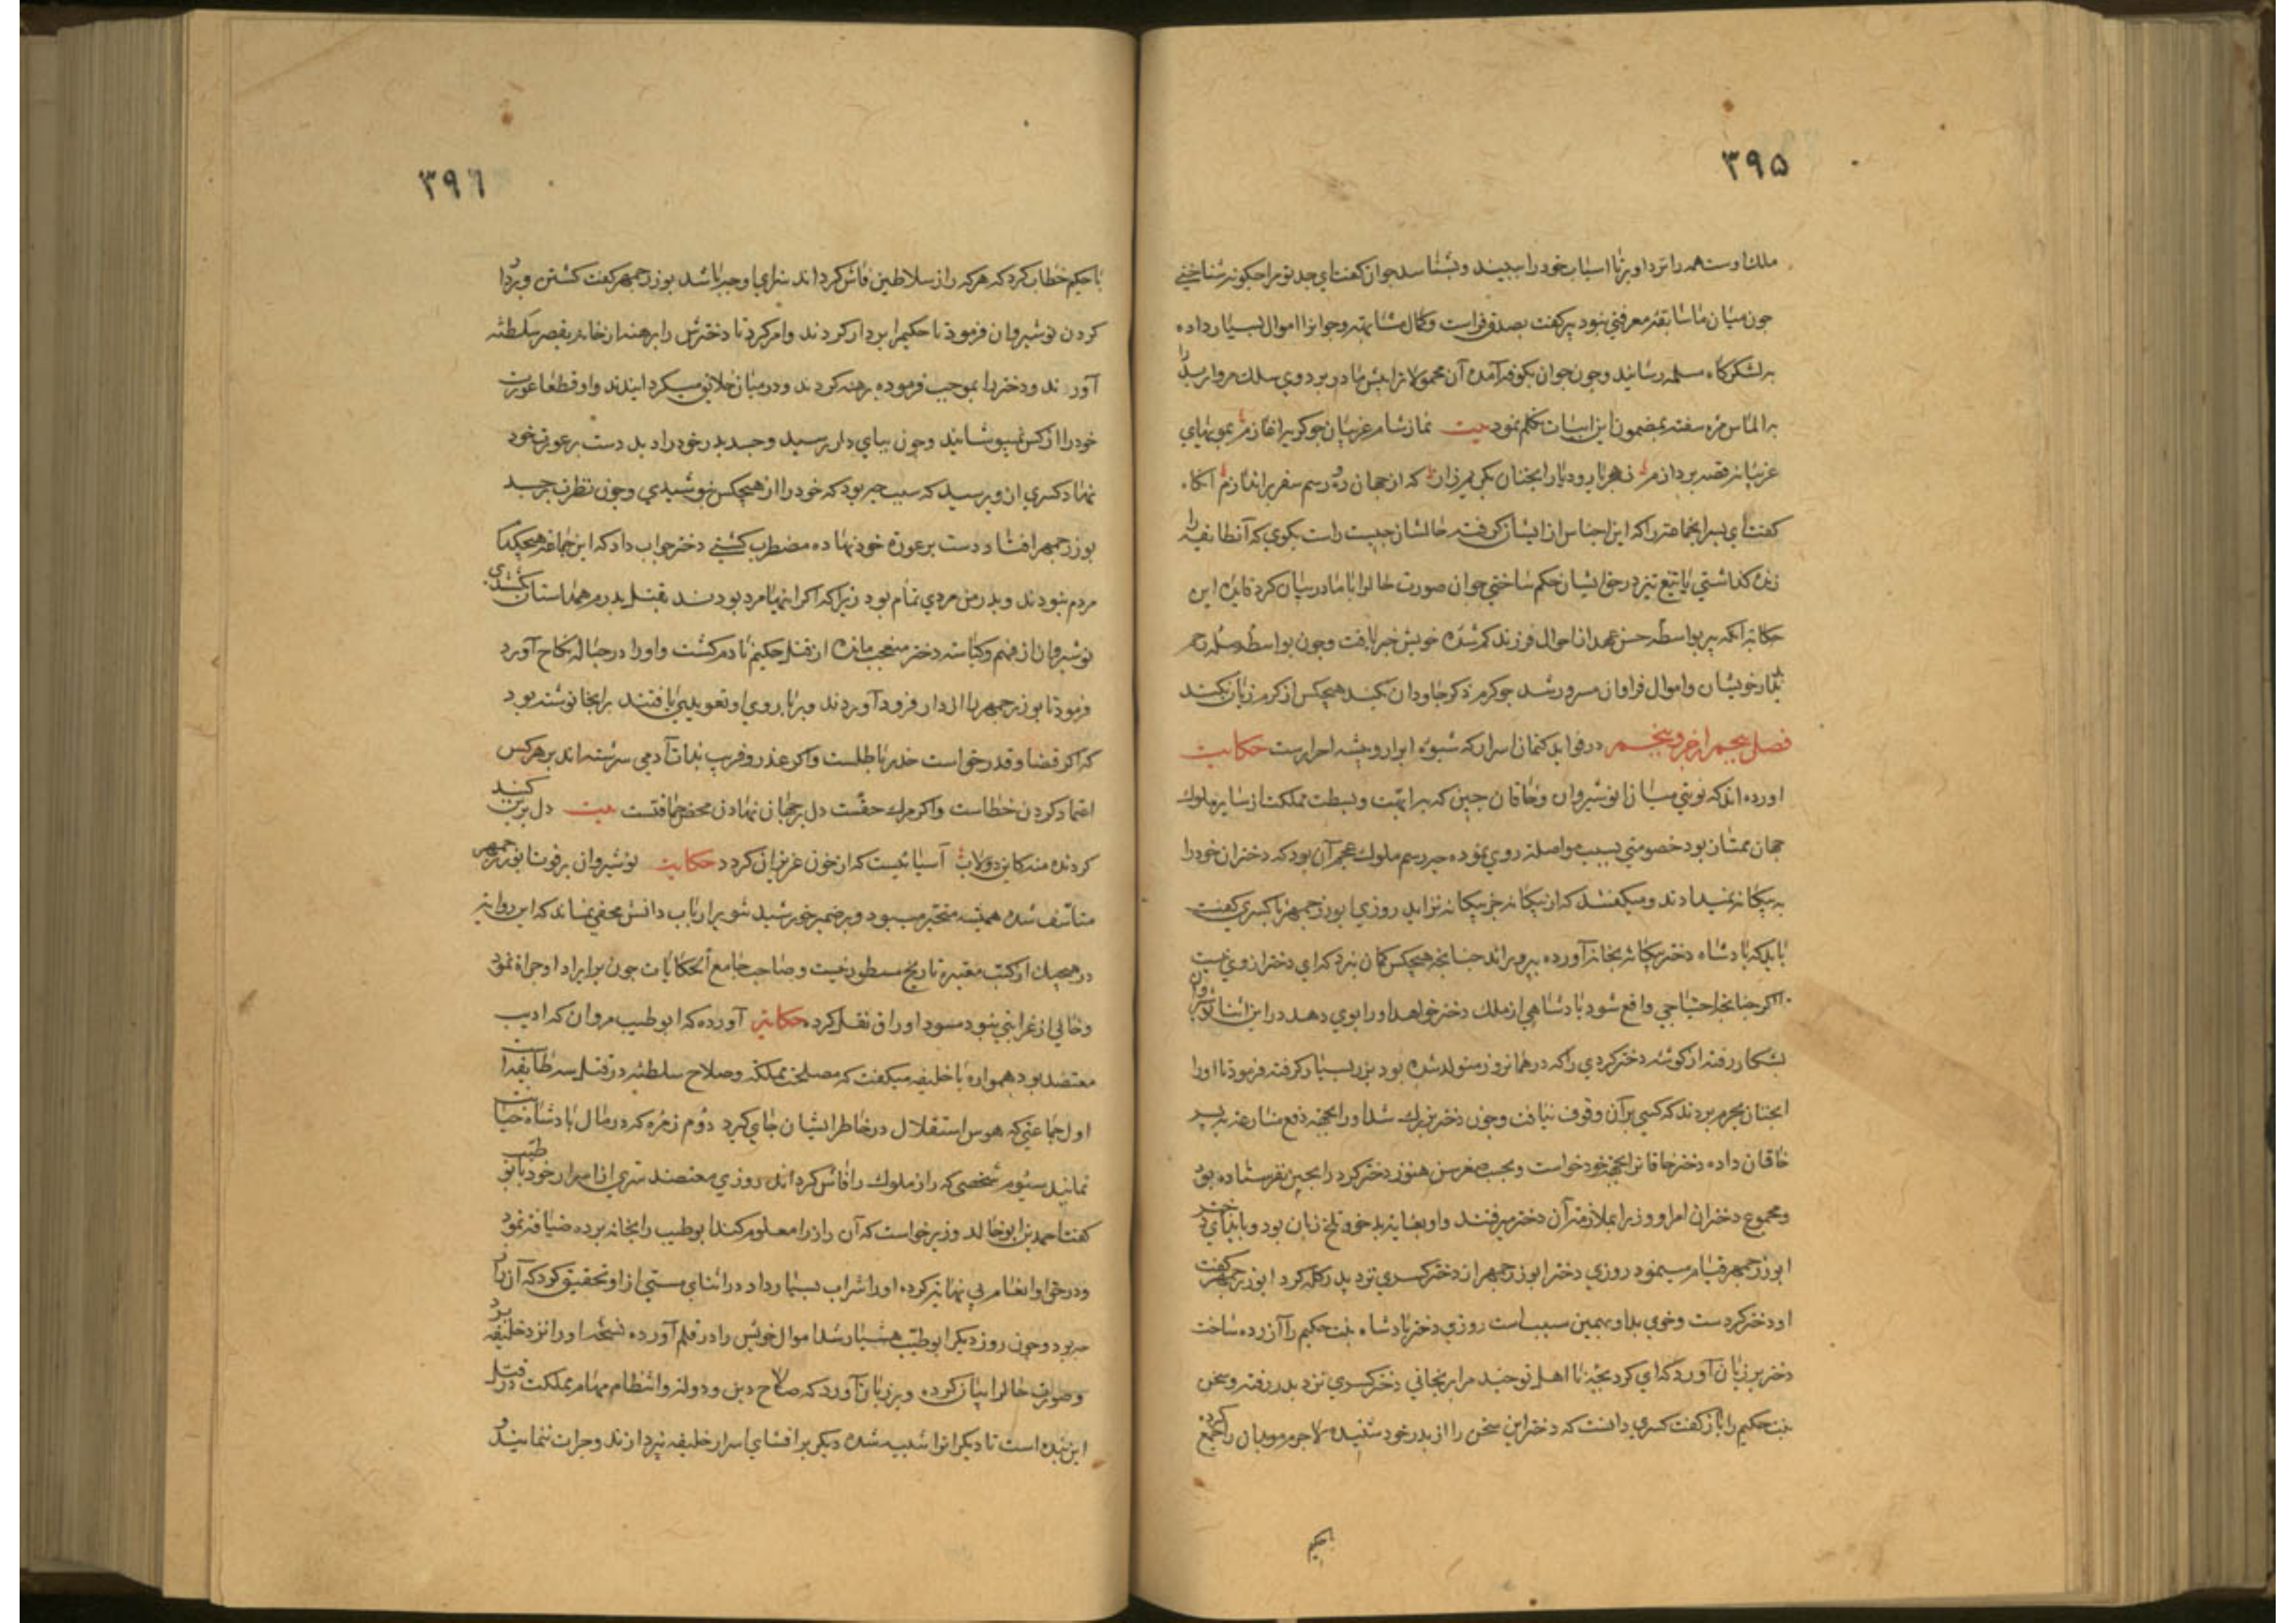 ۳۹۵
ملک اوست همه را نزد او بر تا اسباب خود را ببیند و بشناسد جوان کفت ای جد تو مرا چکونه شناختی
چون میان ما سابقه معرفتی نبود پیر کفت بصدق فراست و کمال مشابهت و جوانرا اموال بسیار داده
بلشکرکاه مسلمه رسانید و چون جوان بکوفه آمد آن محمولات را پیش مادر برد وی سلک مروارید را
بر الماس مژه سفته بمضمون این ابیات تکلم نمود بیت نماز شام غریبان چو کریه آغازم بمویهای
غریبانه قصه پردازم ز هجر یار و دیار آنچنان بکریم زار که از جهان ره و رسم سفر براندازم آنکاه
کفت ای پسر آنجماعت را که این اجناس از ایشان کرفته حالشان چیست راست بکوی که آنطایفه را
زنده کذاشتی یا بتیغ تیز در حق ایشان حکم ساختی جوان صورت حالرا با مادر بیان کرد فایده این
حکایة آنکه پیر بواسطه حسن عهد از احوال فرزند کم شده خویش خبر یافت و چون بواسطه صله رحم
بدیدار خویشان و اموال فراوان مسرور شد چو کرم ذکر جاودان نکند هیچکس از کرم زیان نکند
فصل پنجم از جزو پنجم در فواید کتمان اسرار که شیوه ابرار و پیشه احرارست حکایت
اورده اند که نوبتی میان انوشیروان و خاقان چین که بر ابهت و بسطت مملکت از سایر ملوک
جهان ممتاز بود خصومتی بسبب مواصلة روی نموده چه رسم ملوک عجم آن بود که دختران خود را
به بیکانه نمیدادند و میکفتند که از بیکانه جز بیکانه نزاید روزی ابوزرجمهر با کسری کفت
باید که پادشاه دختر بیکانه بخانه آورده بپروراند چنانچه هیچکس کمان نبرد که ای دختر از وی نیست
اکر چنانچه احتیاجی واقع شود پادشاهی از ملک دختر خواهد او را بوی دهد در این اثنا نوشیروان
بشکار رفته از کوشه دختر کردی را که در همانروز متولد شده بود بزر بسیار کرفته فرمود تا او را
آنچنان بحرم بردند که کسی بر آن وقوف نیافت و چون دختر بزرک شد او را بجهة دفع منازعه به پسر
خاقان داده دختر خاقان را بجهة خود خواست و بحسب صغر سن هنوز دختر کرد را بچین نفرستاده بود
و مجموع دختران امرا و وزرا بملازمت آن دختر میرفتند و او بغایة بدخو و تلخ زبان بود و بایذای دختر
ابوزرجمهر قیام مینمود روزی دختر ابوزرجمهر از دختر کسری نزد پدر کله کرد ابوزرجمهر کفت
او دختر کردست و خوی بد او بهمین سبب است روزی دختر پادشاه بنت حکیم را آزرده ساخت
دختر بر زبان آورد که ای کرد بچه نا اهل تو چند مرا برنجانی دختر کسری نزد پدر رفته و سخن
بنت حکیم را باز کفت کسری دانست که دختر این سخن را از پدر خود شنیده لاجرم موبدان را جمع کرده
باحکیم
۳۹۶
با حکیم خطاب کرد که هر که راز سلاطین فاش کرداند سزای او چه باشد بوزرجمهر کفت کشتن و بردار
کردن نوشیروان فرمود تا حکیم را بردار کردند و امر کرد تا دخترش را برهنه از خانه بقصر سلطنه
آورند و دختر را بموجب فرموده برهنه کردند و در میان خلایق میکردانیدند و او قطعا عورت
خود را از کس نمیپوشانید و چون بپای دار رسید و جسد پدر خود را دید دست بر عورت خود
نهاد کسری از و پرسید که سبب چه بود که خود را از هیچکس نپوشیدی و چون نظرت بر جسد
بوزرجمهر افتاد دست بر عورة خود نهاده مضطرب کشتی دختر جواب داد که این جماعة هیچکدام
مردم نبودند و پدر من مردی تمام بود زیرا که اکر اینها مرد بودند بقتل پدرم همداستان نشدندی
نوشیروان از فهم و کیاست دختر متعجب مانده از قتل حکیم نادم کشت و او را در حباله نکاح آورد
فرمود تا بوزرجمهر را از دار فرود آوردند و بر بازوی او تعویذی یافتند بر آنجا نوشته بود
که اکر قضا و قدر حق است حذر باطلست و اکر غدر و فریب بذات آدمی سرشته اند بر هر کس
اعتماد کردن خطاست و اکر مرک حقست دل بر جهان نهادن محض حماقتست بیت دل بر این کنبد
کردنده منه کاین دولاب آسیائیست که از خون عزیزان کردد حکایت نوشیروان بر فوت ابوزرجمهر
متأسف شده همیشه متحیر میبود و بر ضمیر خورشید تنویر ارباب دانش مخفی نماند که این روایة
در هیچیک از کتب معتبره تاریخ مسطور نیست و صاحب جامع الحکایات چون بر ایراد او جرأة نموده
و خالی از غرابتی نبود مسود اوراق نقل کرده حکایة آورده که ابو طیب مروان که ادیب
معتضد بود همواره با خلیفه میکفت که مصلحت مملکة و صلاح سلطنه در قتل سه طایفه است
اول جماعتی که هوس استقلال در خاطر ایشان جای کیرد دوم زمره که در مال پادشاه خیانت
نمایند سیوم شخصی که راز ملوک را فاش کرداند روزی معتضد سری از اسرار خود با بو طیب
کفت احمد بن ابو خالد وزیر خواست که آن راز را معلوم کند ابو طیب را بخانه برده ضیافه نمود
و در حق او انعام بی نهایة کرده او را شراب بسیار داد در اثنای مستی از او تحقیق کرد که آن راز
چه بود و چون روز دیکر ابو طیب هشیار شد اموال خویش را در قلم آورده نسخه او را نزد خلیفه برد
و صورت حالرا بیان کرده و بر زبان آورد که صلاح دین و دولة و انتظام مهام مملکت در قتل
این بنده است تا دیکرانرا تنبیه شده دیکر بر افشای اسرار خلیفه نپردازند و جرات ننمایند و